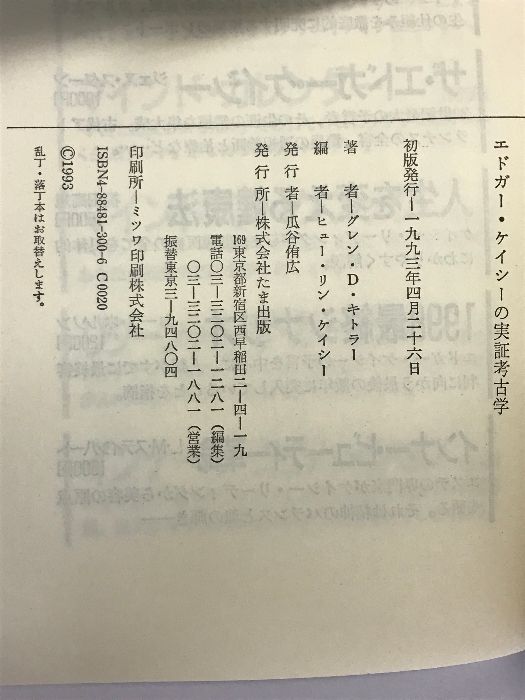 エドガー・ケイシーの実証考古学
初版発行―一九九三年四月二十六日
著　者―グレン・D・キトラー
編　者―ヒュー・リン・ケイシー
発行者―瓜谷侑広
発行所―株式会社たま出版
169東京都新宿区西早稲田二―四―一九
電話〇三―三二〇二―一二八一（編集）
〇三―三二〇二―一八八一（営業）
振替東京三―九四八〇四
印刷所―ミツワ印刷株式会社
©1993
ISBN4-88481-300-6 C0020
乱丁・落丁本はお取替えします。